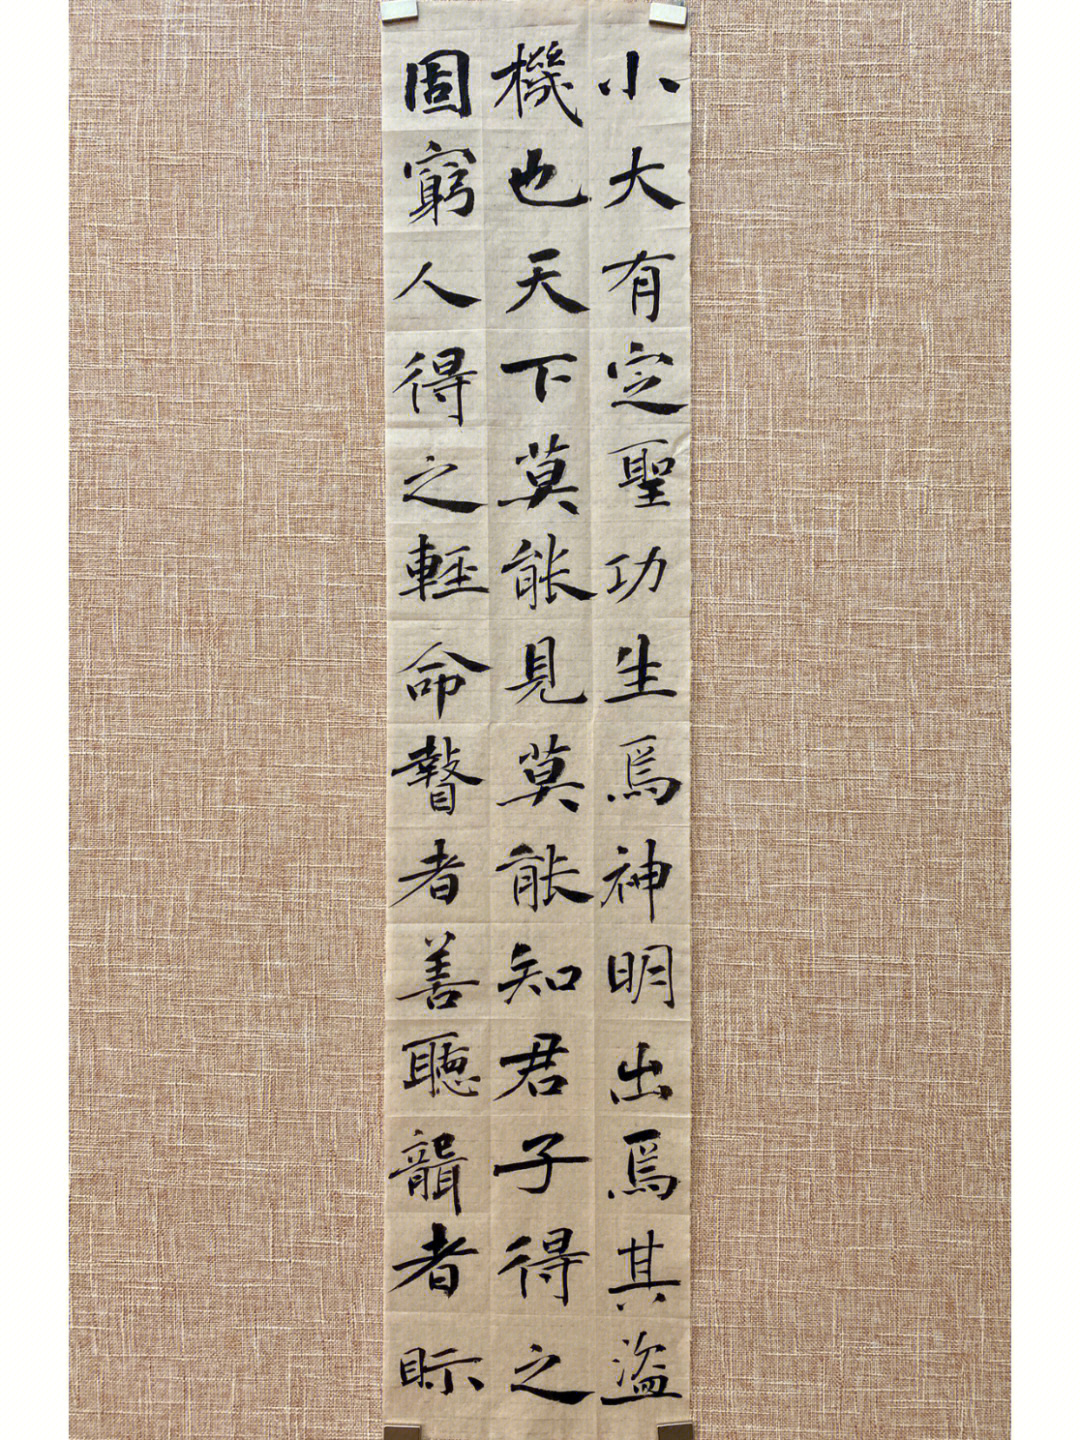 小大有定聖功生焉神明出焉其盜
機也天下莫能見莫能知君子得之
固窮人得之輕命瞽者善聽聾者眎